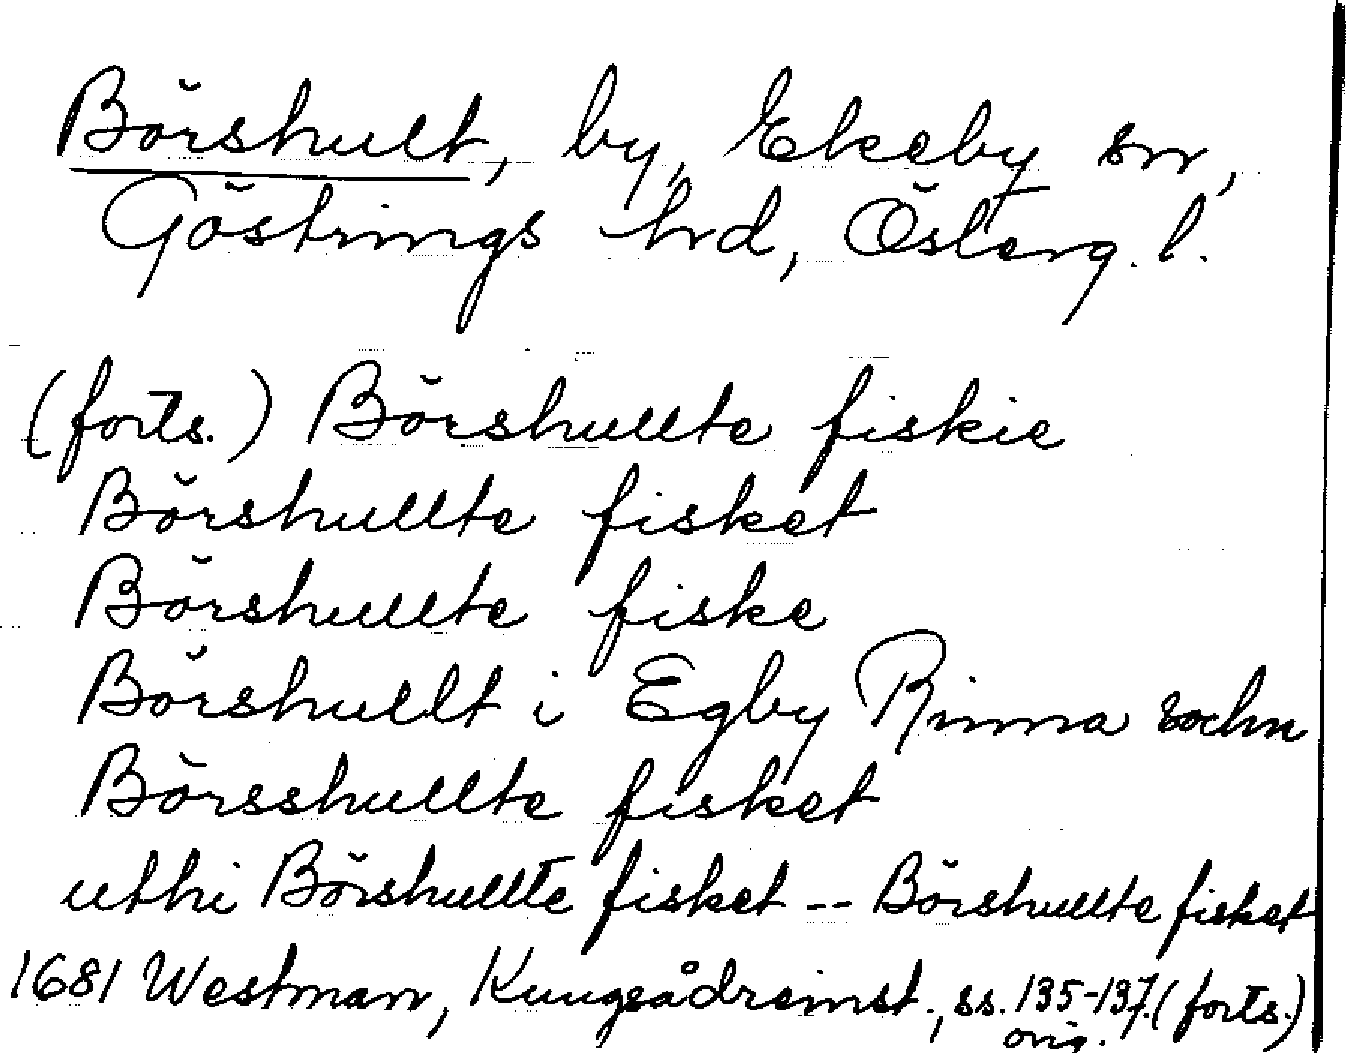 Börshult, by, Ekeby sn,
Göstrings hrd, Österg. l.
(forts.) Börshullte fiskie
Börshullte fisket
Börshullte fiske
Börshullt i Egby Rinna sochn
Börsshullte fisket
uthi Börshullte fisket -- Börshullte fisket
1681 Westman, Kungsådreinst., ss. 135-137. (forts.)
orig.